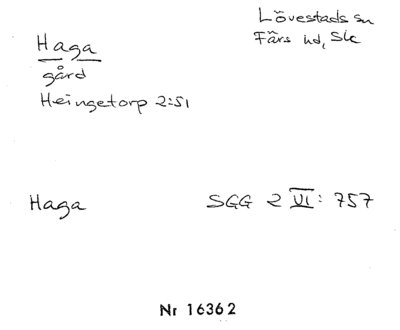 Haga
Lövestads sn
Färs hd, Sk
gård
Heingetorp 2:51
Haga
SGG 2 VI: 757
Nr 16362